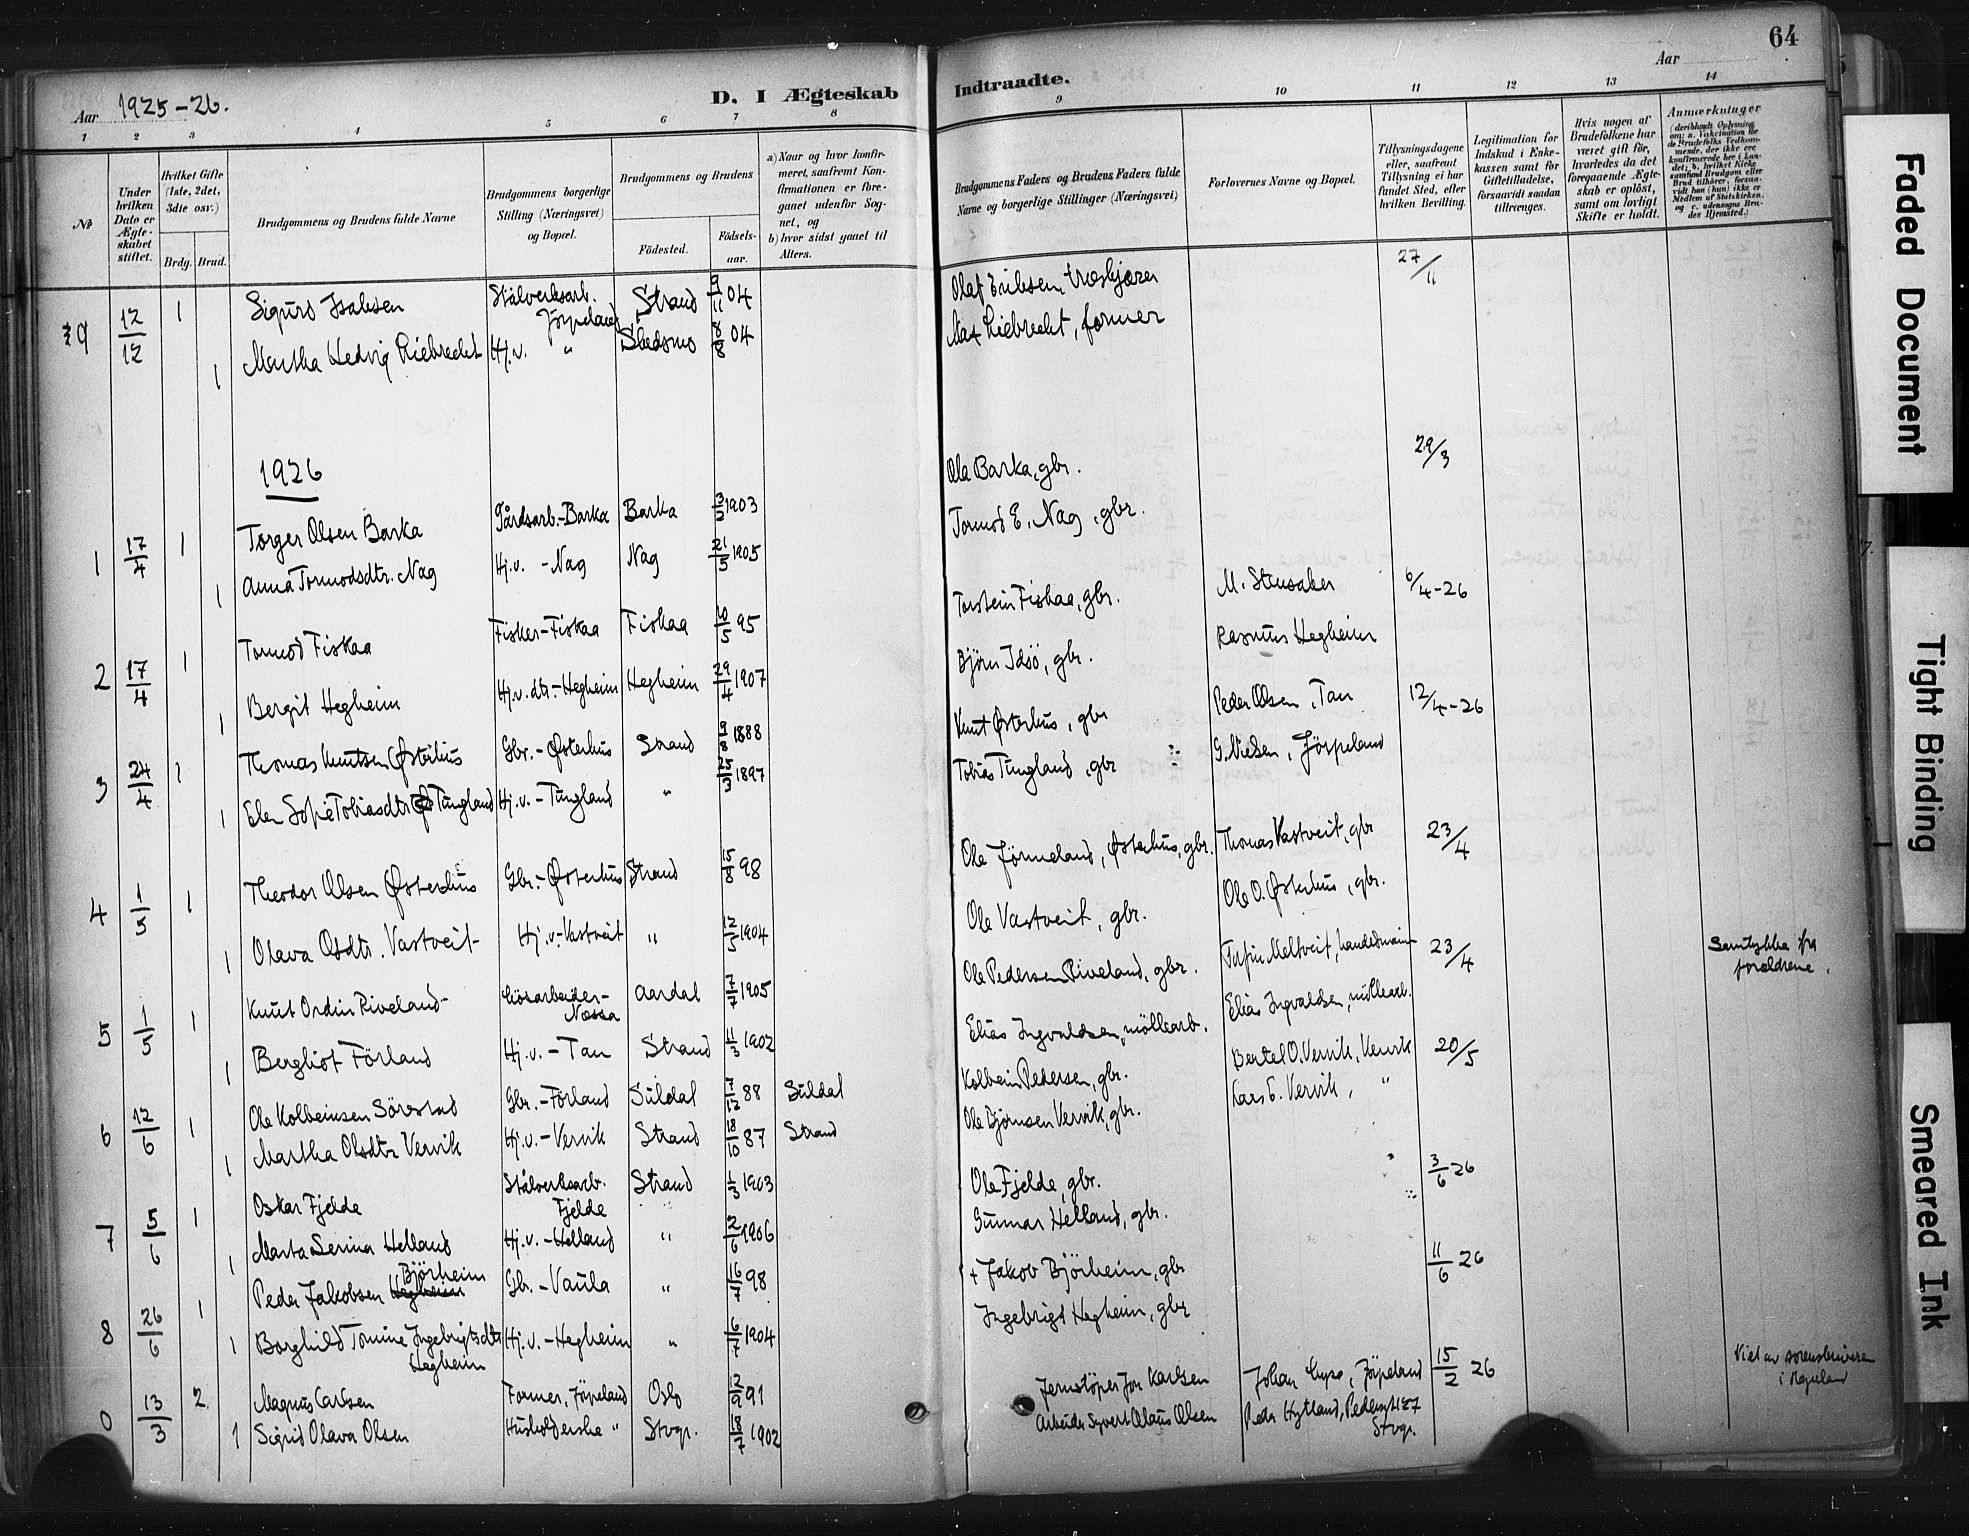 64
Aar 1925-26.
D. I Ægteskab Indtraadte.
Aar
1 2 3 4 5 6 7 8 9 10 11 12 13 14
№
Under hvilken Dato er Ægteskabet stiftet.
Hvilket Gifte (1ste, 2det, 3die osv.)
Brdg. Brud.
Brudgommens og Brudens fulde Navne
Brudgommens borgerlige Stilling (Næringsvei) og Bopæl.
Brudgommens og Brudens
Födested.
Födselsaar.
a) Naar og hvor konfirmeret, saafremt Konfirmationen er foregaaet udenfor Sognet, og
b) hvor sidst gaaet til Alters.
Brudgommens Faders og Brudens Faders fulde Navne og borgerlige Stillinger (Næringsvei)
Forlovernes Navne og Bopæl.
Tillysningsdagene eller, saafremt Tillysning ei har fundet Sted, efter hvilken Bevilling.
Legitimation for Indskud i Enkekassen samt for Giftetilladelse, forsaavidt saadan tiltrænges.
Hvis nogen af Brudefolkene har været gift för, hvorledes da det foregaaende Ægteskab er oplöst, samt om lovligt Skifte er holdt.
Anmærkninger
(deriblandt Oplysning om: a. Vakcination for de Brudefolks Vedkommende, der ikke ere konfirmerede her i Landet, b. hvilket Kirkesamfund Brudgom eller Brud tilhörer, forsaavidt han (hun) ikke er Medlem af Statskirken, og c. udensogns Brudes Hjemsted.)
12/12 1 Sigurd Isaksen Stålverksarb. Jörpeland Strand 9/11 04 Olaf Eriksen 27/11
1 Martha Hedvig Liebrecht Hj.v. " Skedsmo 8/8 04 Max Liebrecht, former
1926
1 17/4 1 Torger Olsen Barka Gårdsarb.-Barka Barka 3/2 1903 Ole Barka, gbr. 29/3
1 Anna Tormodsdtr. Nag Hj.v. - Nag Nag 21/5 1905 Tormod E. Nag, gbr.
2 17/4 1 Tormod Fiskaa Fisker-Fiskaa Fiskaa 10/5 95 Torstein Fiskaa, gbr. M. Stensaker 6/4-26
1 Bergit Hegheim Hj.v. dtr.-Hegheim Hegheim 29/4 1907 Björn Idsö, gbr. Rasmus Hegheim
3 24/4 1 Thomas Knutsen Østerhus Gbr. - Østerhus Strand 9/8 1888 Knut Østerhus, gbr Peder Olsen, Tau 12/4-26
1 Elen Sofie Tobiasdtr Tungland Hj.v. - Tungland " 25/3 1897 Tobias Tungland, gbr G. Nielsen, Jörpeland
4 1/5 1 Theodor Olsen Østerhus Gbr.- Østerhus Strand 15/8 98 Ole Jörmeland, Østerhus, gbr. Thomas Vastveit, gbr 23/4
1 Olava Olsdtr. Vastveit Hj.v.-Vastveit " 12/5 1904 Ole Vastveit, gbr. Ole O. Østerhus, gbr.
5 1/5 1 Knut Ordin Riveland Nessa Aardal 7/7 1905 Ole Pedersen Riveland, gbr. Meltveit, handelsmann 23/4 Samtykke fra foreldrene.
1 Bergliot Förland Hj.v. - Tau Strand 11/3 1902 Elias Ingvaldsen, möllearb. Elias Ingvaldsen, möllearb.
6 12/6 1 Ole Kolbeinsen Sörestad Gbr. - Förland Suldal 7/12 88 Suldal Kolbein Pedersen, gbr. Bertel O. Vervik, Vervik 20/5
1 Martha Olsdtr Vervik Hj.v. - Vervik Strand 18/10 87 Strand Ole Björnsen Vervik, gbr. Lars E. Vervik, "
7 5/6 1 Oskar Fjelde Stålverksarb. Fjelde Strand 1/3 1903 Ole Fjelde, gbr. 3/6 26
1 Marta Serina Helland Hj.v. - Helland " 2/6 1906 Gunnar Helland, gbr.
8 26/6 1 Peder Jakobsen Hegheim Björheim Gbr. - Vaula " 16/7 98 + Jakob Björheim, gbr 11/6 26
1 Borghild Tomine Ingebrigtsdtr Hegheim Hj.v. - Hegheim " 6/7 1904 Ingebrigt Hegheim, gbr
0 13/3 2 Magnus Carlsen Former, Jörpeland Oslo 12/9 91 Jernstöper Jon Karlsen Johan, Jörpeland 15/2 26 Viet av sorenskriveren i Ryfylke
1 Sigrid Olava Olsen Husholderske " Stvgr. 18/7 1902 Arbeider Syvert Olaus Olsen Peder Hytland, Stvgr.
Faded Document
Tight Binding
Smeared Ink